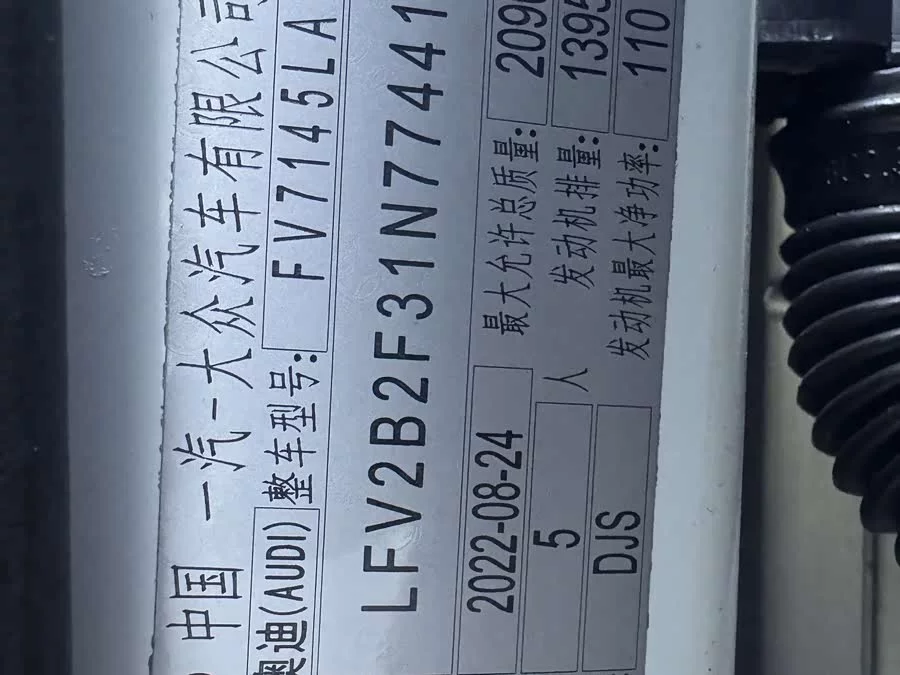 中国 一汽-大众汽车有限公司
奥迪(AUDI) 整车型号: FV7145LA
LFV2B2F31N77441
2022-08-24 最大允许总质量: 209
5 人 发动机排量: 1395
DJS 发动机最大净功率: 110